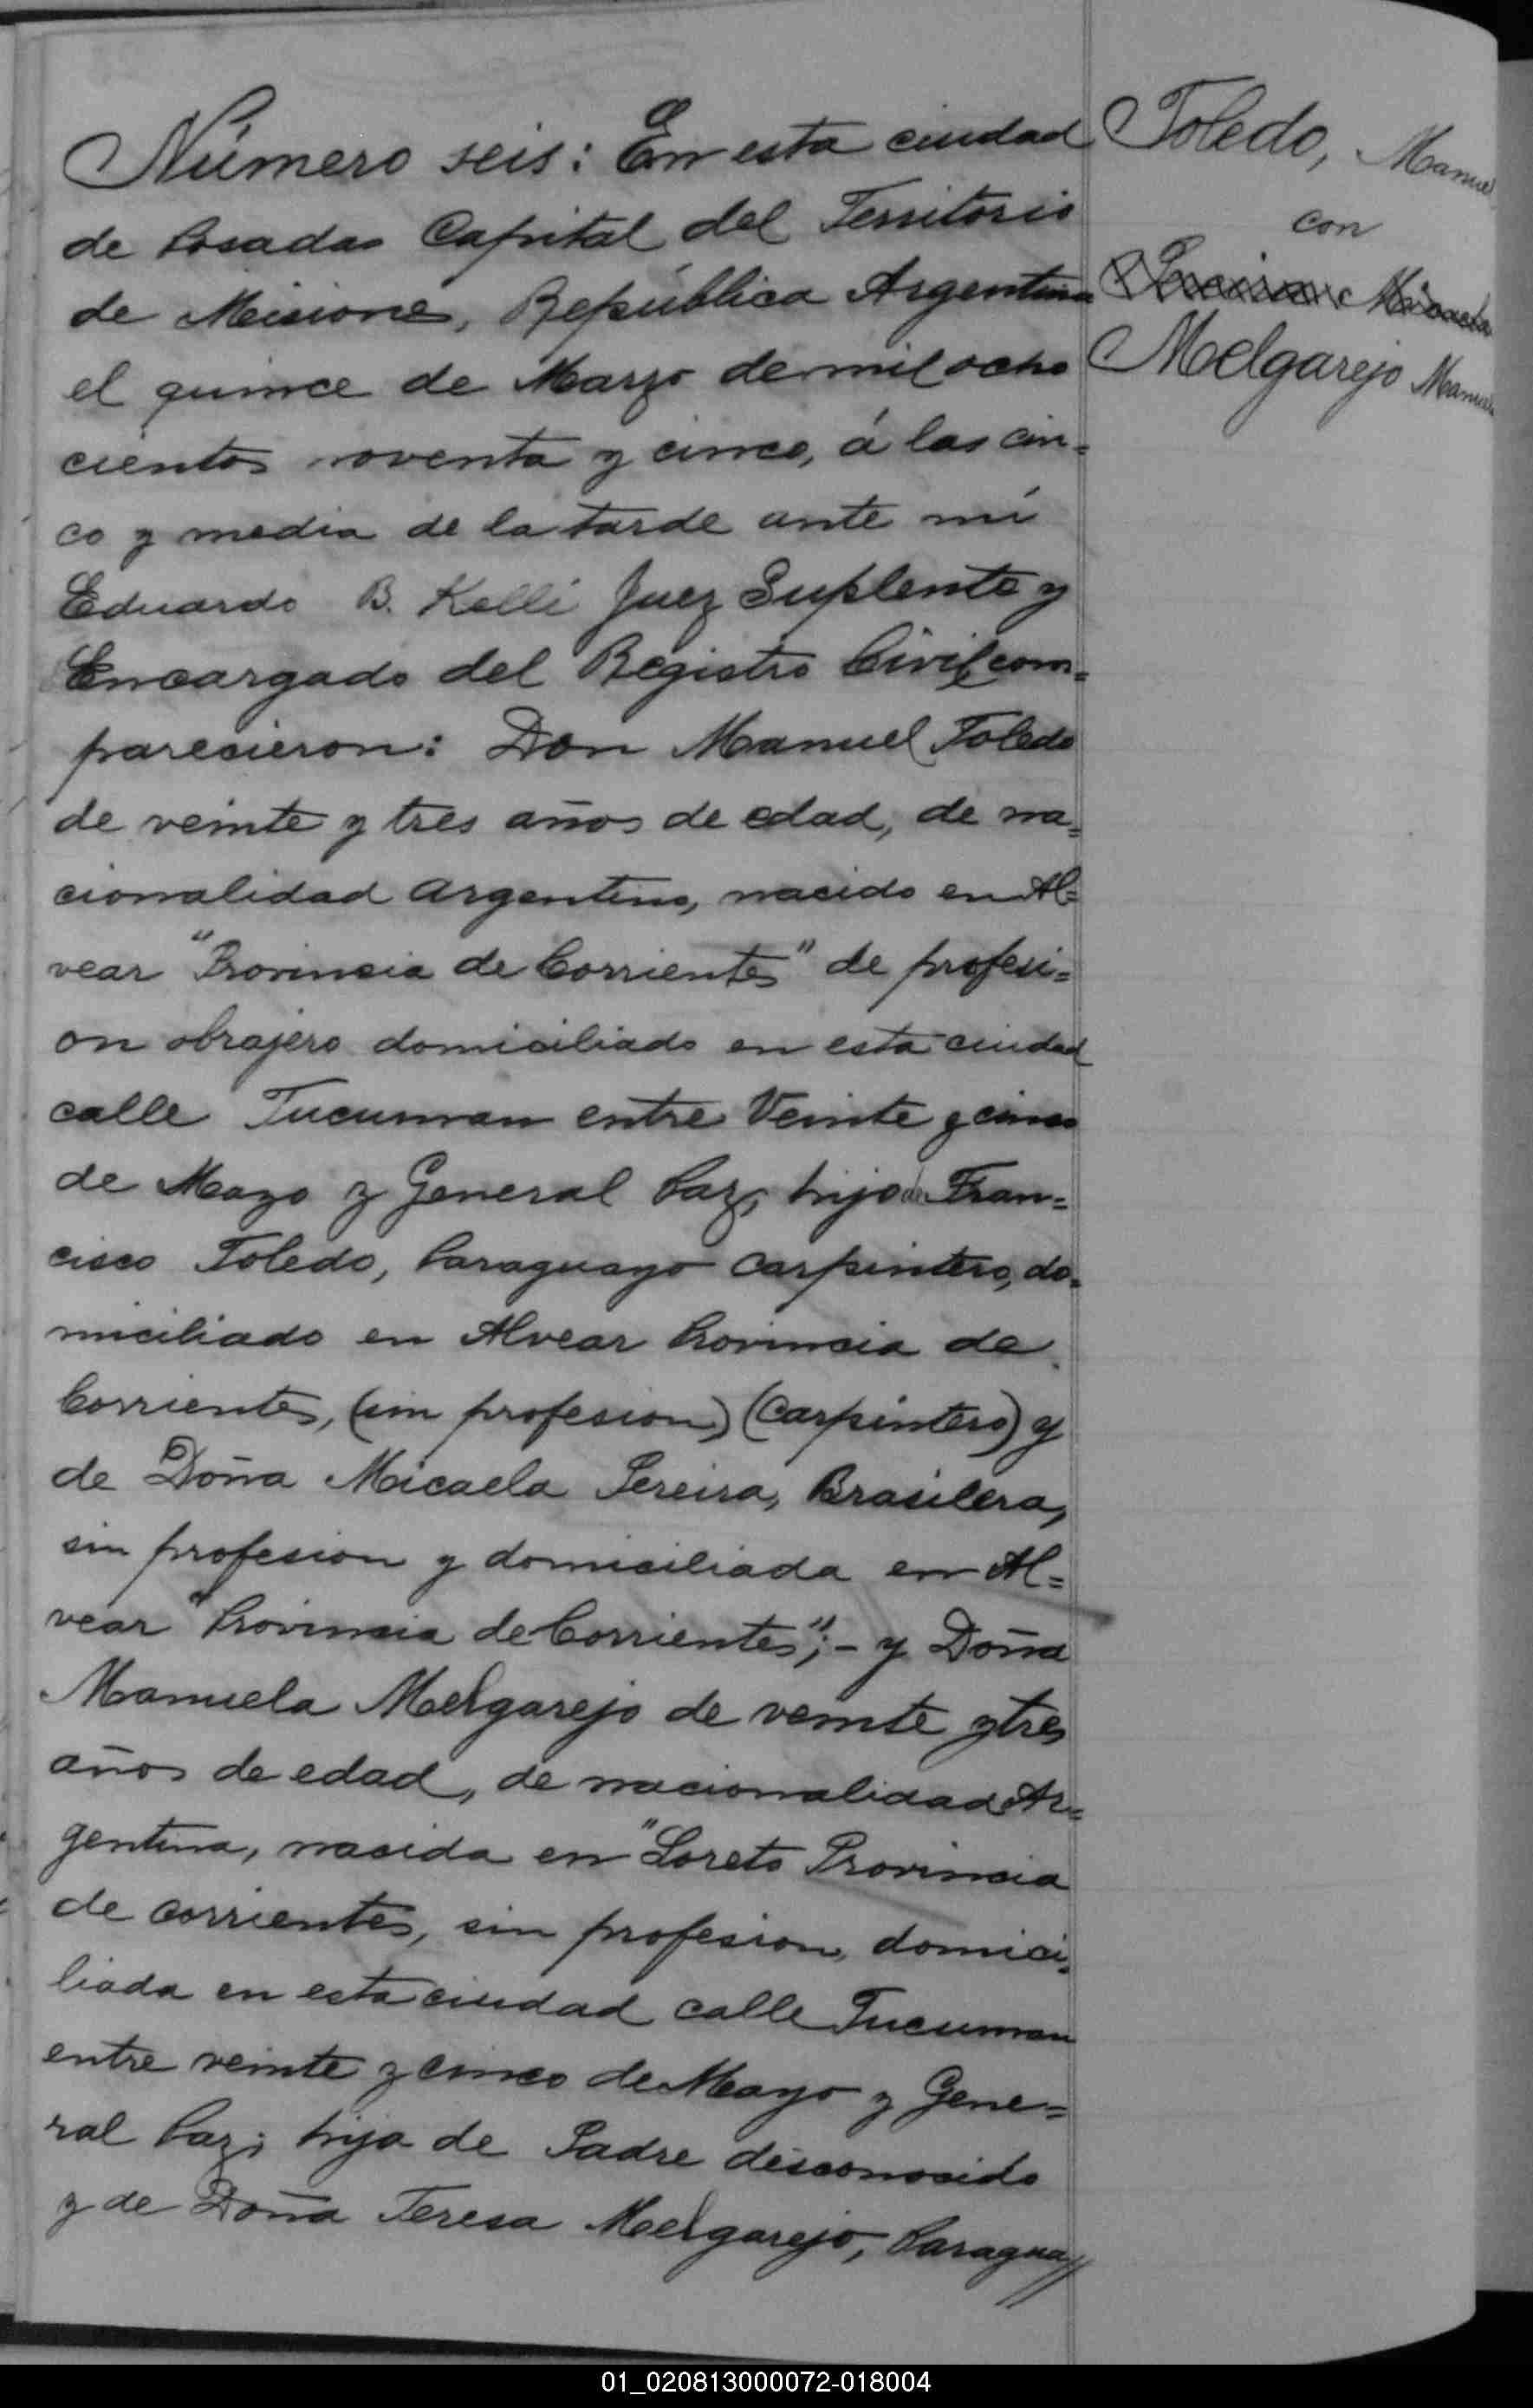 Número seis: En esta ciudad
de Posadas Capital del Territorio
de Misiones, República Argentina
el quince de Marzo de mil ocho
cientos noventa y cinco, á las cin=
co y media de la tarde ante mí
Eduardo B. Kelli Juez Suplente y
Encargado del Registro Civil, com=
parecieron: Don Manuel Toledo
de veinte y tres años de edad, de na=
cionalidad Argentino, nacido en Al=
vear "Provincia de Corrientes" de profesi=
on obrajero domiciliado en esta ciudad
calle Tucuman entre Veinte y cinco
de Mayo y General Paz, hijo de Fran=
cisco Toledo, Paraguayo Carpintero, do=
miciliado en Alvear Provincia de
Corrientes, (sin profesion) (Carpintero) y
de Doña Micaela Pereira, Brasilera,
sin profesion y domiciliada en Al=
vear "Provincia de Corrientes";- y Doña
Manuela Melgarejo de veinte y tres
años de edad, de nacionalidad Ar=
gentina, nacida en "Loreto Provincia
de Corrientes, sin profesion, domici=
liada en esta ciudad calle Tucuman
entre veinte y cinco de Mayo y Gene=
ral Paz; hija de Padre desconocido
y de Doña Teresa Melgarejo, Paragua//
Toledo, Manuel
con
Melgarejo Manuela
01_020813000072-018004